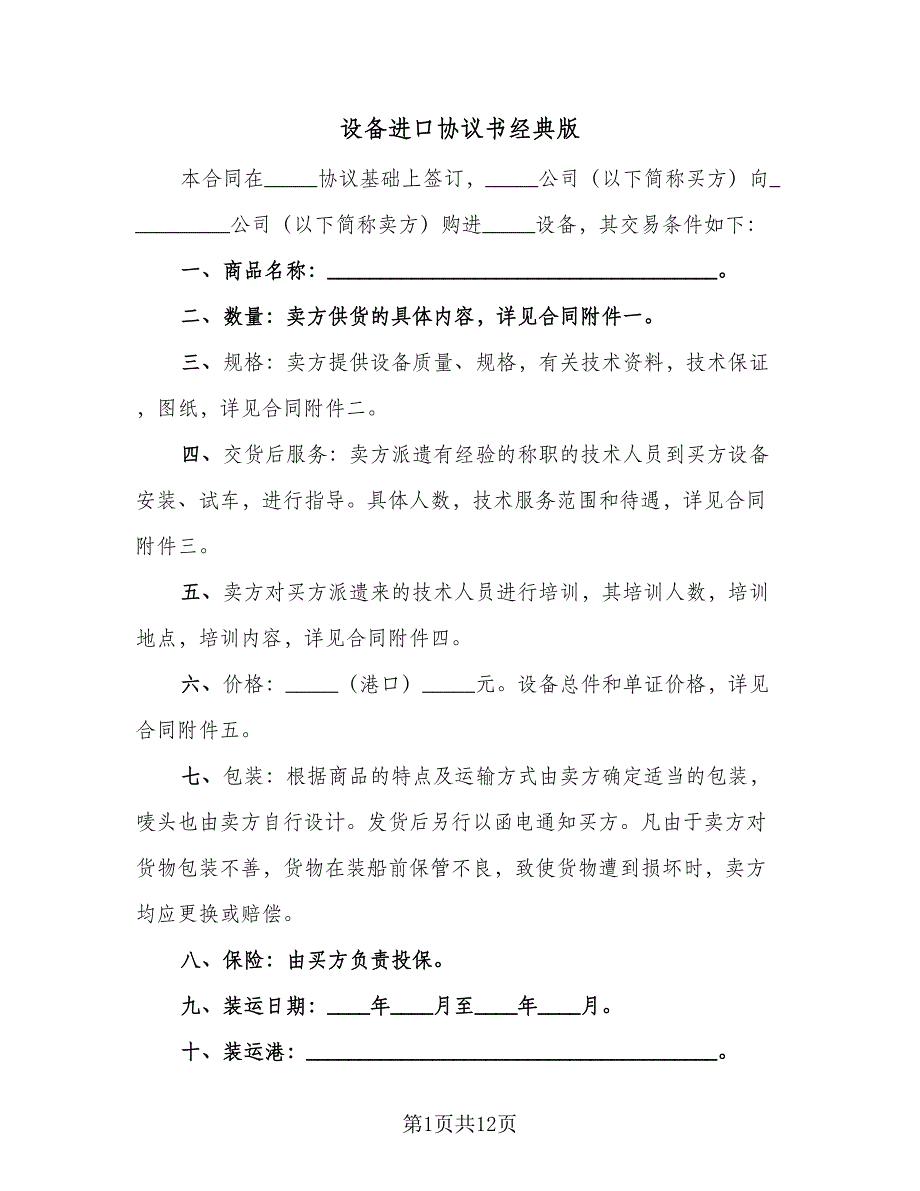 设备进口协议书经典版
本合同在_____协议基础上签订，_____公司（以下简称买方）向_
_________公司（以下简称卖方）购进_____设备，其交易条件如下：
一、商品名称：_____________________________________。
二、数量：卖方供货的具体内容，详见合同附件一。
三、规格：卖方提供设备质量、规格，有关技术资料，技术保证
，图纸，详见合同附件二。
四、交货后服务：卖方派遣有经验的称职的技术人员到买方设备
安装、试车，进行指导。具体人数，技术服务范围和待遇，详见合同
附件三。
五、卖方对买方派遣来的技术人员进行培训，其培训人数，培训
地点，培训内容，详见合同附件四。
六、价格：_____（港口）_____元。设备总件和单证价格，详见
合同附件五。
七、包装：根据商品的特点及运输方式由卖方确定适当的包装，
唛头也由卖方自行设计。发货后另行以函电通知买方。凡由于卖方对
货物包装不善，货物在装船前保管不良，致使货物遭到损坏时，卖方
均应更换或赔偿。
八、保险：由买方负责投保。
九、装运日期：____年____月至____年____月。
十、装运港：_______________________________________。
第1页共12页